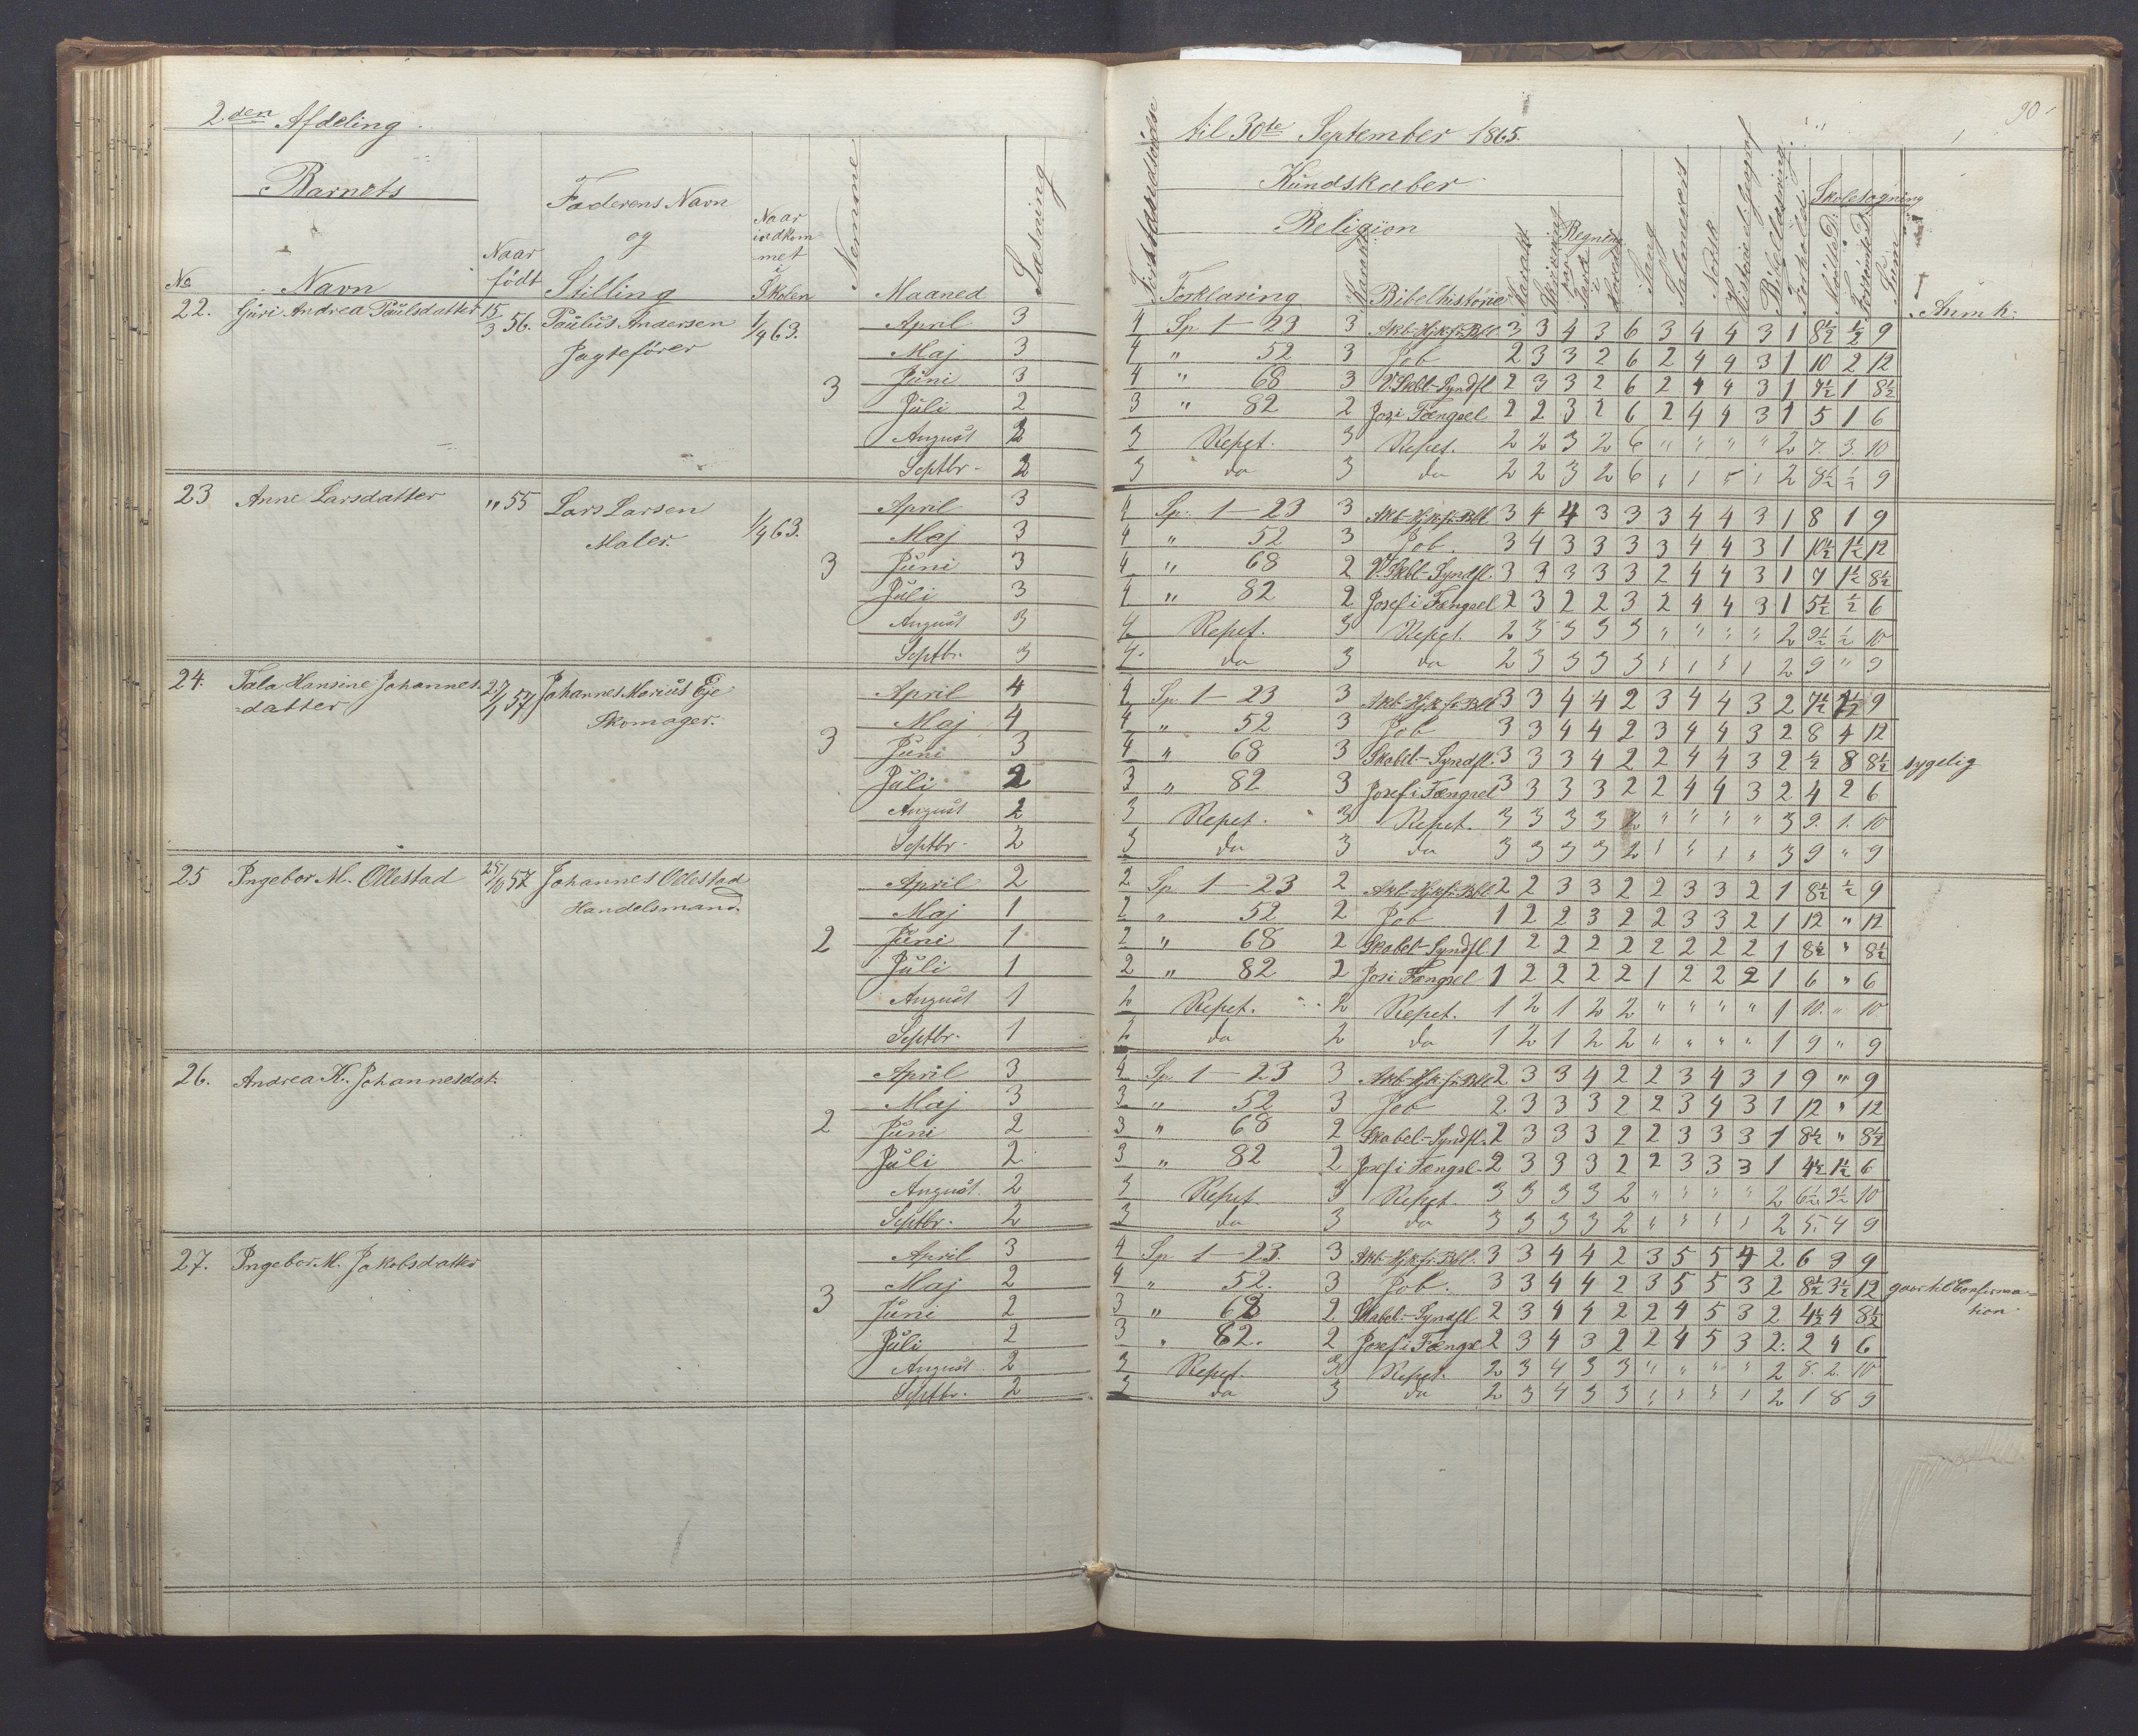 2den Afdeling.
Barnets
Faderens Navn
og
Stilling
Naar
indkom
met
i
Skolen
Nemme
Læsning
No
Navn
Naar
født
Maaned
22. Guri Andrea Paulsdatter 15/3 56. Paulus Andersen 1/9 63. April 3
Jagtefører Maj 3
3 Juni 3
Juli 2
August 2
Septbr. 2
23 Anne Larsdatter " 55 Lars Larsen 1/9 63. April 3
Maler. Maj 3
3 Juni 3
Juli 3
August 3
Septbr. 3
24. Tala Hansine Johannes- 27/1 57 Johannes Marius Eje April 4
=datter Skomager. Maj 4
3 Juni 3
Juli 2
August 2
Septbr. 2
25 Ingebor M. Ollestad 25/10 57 Johannes Ollestad April 2
Handelsmand. Maj 1
2 Juni 1
Juli 1
August 1
Septbr. 1
26. Andrea K. Johannesdat. April 3
Maj 3
2 Juni 2
Juli 2
August 2
Septbr. 2
27. Ingebor M. Jakobsdatter April 3
Maj 2
3 Juni 2
Juli 2
August 2
Septbr. 2
90
til 30te September 1865.
Kundskaber
Religion
Regning
Skolesøgning
Forklaring Karakt. Bibelhistorie Karakt. Skrivning Sang Salmevers Bibellæsning Forhold Sum
Anmk:
4 Sp. 1-23 3 Akb-Hjk.fr.Bbl. 3 3 4 3 6 3 4 4 3 1 8½ ½ 9
4 " 52 3 Job 2 3 3 2 6 2 4 4 3 1 10 2 12
4 " 68 3 V.Skbl-Syndfl 2 3 3 2 6 2 4 4 3 1 7½ 1 8½
3 " 82 2 Jos i Fængsel 2 2 3 2 6 2 4 4 3 1 5 1 6
3 Repet. 3 Repet. 2 2 3 2 6 " " " " 2 7. 3. 10
3 do 3 do 2 2 3 2 6 " " " " 2 8½ ½ 9
4 Sp. 1-23 3 Akb-Hjk.fr.Bbl 3 4 4 3 3 3 4 4 3 1 8 1 9
4 " 52 3 Job. 3 4 3 3 3 3 4 4 3 1 10½ 1½ 12
4 " 68 2 V.Skbl-Syndfl. 3 3 3 3 3 2 4 4 3 1 7 1½ 8½
4 " 82 2 Josef i Fængsel 2 3 2 2 3 2 4 4 3 1 5½ ½ 6
4 Repet. 3 Repet. 2 3 3 3 3 " " " " 2 9½ ½ 10
4. do 3 do 2 3 3 3 3 " " " " 2 9 " 9
4 Sp. 1-23 3 Akb-Hjk.fr.Bbl 3 3 4 4 2 3 4 4 3 2 7½ 1½ 9
4 " 52 3 Job 3 3 4 4 2 3 4 4 3 2 8 4 12
4 " 68 3 Skabel-Syndfl. 3 3 3 4 2 2 4 4 3 2 ½ 8 8½ sygelig
3 " 82 3 Josef i Fængsel 3 3 3 3 2 2 4 4 3 2 4 2 6
3 Repet. 3 Repet. 3 3 3 3 2 " " " " 3 9. 1. 10
3 do 3 do 3 3 3 3 2 " " " " 3 9 " 9
2 Sp. 1-23 2 Akb-Hjk.fr.Bbl. 2 2 3 3 2 2 3 3 2 1 8½ ½ 9
2 " 52 2 Job 1 2 2 3 2 2 3 3 2 1 12 " 12
2 " 68 2 Skabel-Syndfl. 1 2 2 2 2 2 2 2 2 1 8½ " 8½
2 " 82 2 Jos i Fængsel 1 2 2 2 2 1 2 2 2 1 6 " 6
2 Repet. 2 Repet. 1 2 1 2 2 " " " " 1 10. " 10.
2 do 2 do 1 2 1 2 2 " " " " 1 9 " 9
4 Sp. 1-23 3 Akb-Hjk.fr.Bbl 2 3 3 4 2 2 3 4 3 1 9 " 9
3 " 52 3 Job 2 3 3 3 2 2 3 4 3 1 12 " 12
3 " 68 2 Skabel-Syndfl. 2 3 3 3 2 2 3 3 3 1 8½ " 8½
3 " 82 2 Josef i Fængsl. 2 3 3 3 2 2 3 3 3 1 4½ 1½ 6
3 Repet 3 Repet. 3 3 3 3 2 " " " " 2 6½ 3½ 10
3 do 3 do 3 3 3 3 2 " " " " 2 5. 4 9
4 Sp. 1-23. 3 Akb-Hjk.fr.Bbl. 3 3 4 4 2 3 5 5 4 2 6 3 9
4 " 52. 3 Job. 3 3 4 4 2 3 5 5 3 2 8½ 3½ 12 gaar til Confirma=
3 " 68 2 Skabel-Syndfl 2 3 4 4 2 2 4 5 3 2 4½ 4 8½ tion.
3 " 82. 2 Josef i Fængsl 2 3 4 3 2 2 4 5 3 2. 2 4 6
3 Repet. 3 Repet. 2 3 4 3 3 " " " " 2 8. 2. 10
3 do 3 do 2 3 4 3 3 " " " " 2 1 8 9